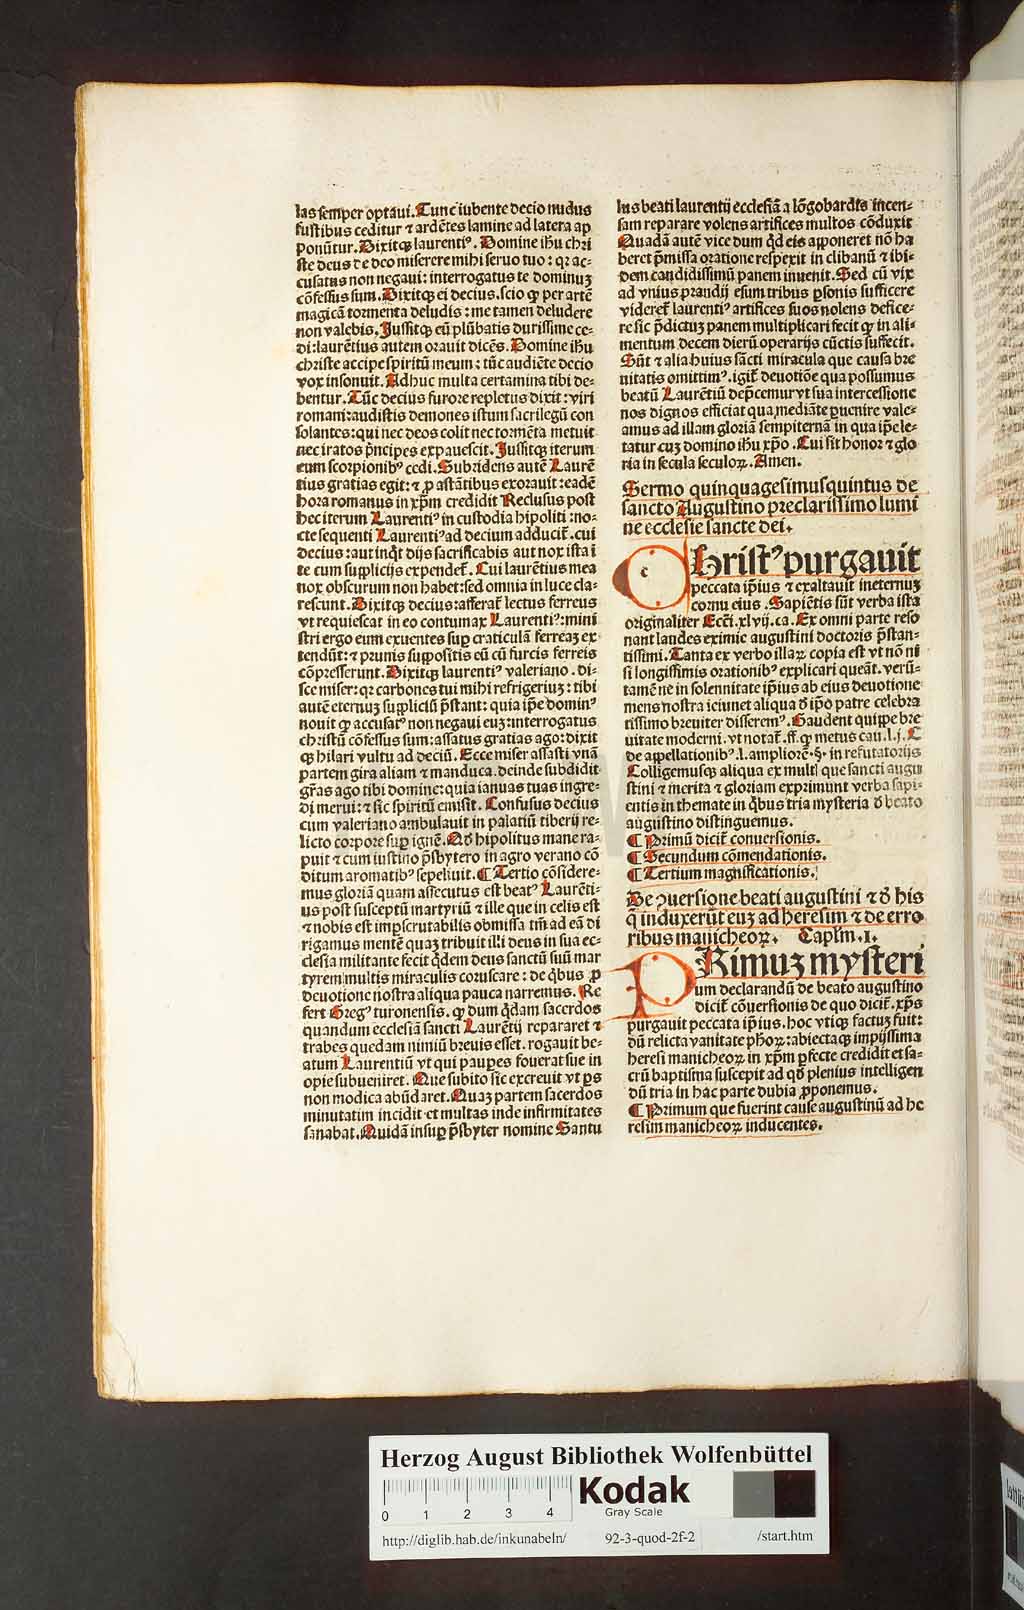 las semper optaui. Tunc iubente decio nudus
fustibus ceditur ⁊ ardētes lamine ad latera ap
ponūtur. Dixitqꝫ laurentiꝰ. Domine ihu chri
ste deus de deo miserere mihi seruo tuo: qꝛ ac-
cusatus non negaui: interrogatus te dominuꝫ
cōfessus sum. Dixitqꝫ ei decius. scio ꝙ per artē
magicā tormenta deludis: me tamen deludere
non valebis. Jussitqꝫ eū plūbatis durissime ce-
di: laurētius autem orauit dicēs. Domine ihu
christe accipe spiritū meum: tūc audiēte decio
vox insonuit. Adhuc multa certamina tibi de-
bentur. Tūc decius furore repletus dixit: viri
romani: audistis demones istum sacrilegū con
solantes: qui nec deos colit nec tormēta metuit
nec iratos pͥncipes expauescit. Jussitqꝫ iterum
eum scorpionibꝰ cedi. Subridens autē Laurē
tius gratias egit: ⁊ ꝓ astātibus exorauit: eadē
hora romanus in xp̄m credidit Reclusus post
hec iterum Laurentiꝰ in custodia hipoliti: no-
cte sequenti Laurentiꝰ ad decium adducit᷑. cui
decius: aut inqͥt dijs sacrificabis aut nox ista ī
te cum supplicijs expendet᷑. Cui laurētius mea
nox obscurum non habet: sed omnia in luce cla-
rescunt. Dixitqꝫ decius: afferat᷑ lectus ferreus
vt requiescat in eo contumax Laurentiꝰ: mini
stri ergo eum exuentes suꝑ craticulā ferreaꝫ ex
tendūt: ⁊ prunis suppositis eū cū furcis ferreis
cōpresserunt. Dixitqꝫ laurentiꝰ valeriano. di-
sce miser: qꝛ carbones tui mihi refrigeriuꝫ: tibi
autē eternuꝫ suppliciū p̄stant: quia ip̄e dominꝰ
nouit ꝙ accusatꝰ non negaui euꝫ: interrogatus
christū cōfessus sum: assatus gratias ago: dixit
qꝫ hilari vultu ad deciū. Ecce miser assasti vnā
partem gira aliam ⁊ manduca. deinde subdidit
gr̄as ago tibi domine: quia ianuas tuas ingre-
di merui: ⁊ sic spiritū emisit. Confusus decius
cum valeriano ambulauit in palatiū tiberij re-
licto corpore suꝑ ignē. Qd̄ hipolitus mane ra-
puit ⁊ cum iustino p̄sbytero in agro verano cō
ditum aromatibꝰ sepeliuit. ¶ Tertio cōsidere-
mus gloriā quam assecutus est beatꝰ Laurēti-
us post susceptū martyriū ⁊ ille que in celis est
⁊ nobis est imp̄scrutabilis obmissa tm̄ ad eā di
rigamus mentē quaꝫ tribuit illi deus in sua ec-
clesia militante fecit qͥdem deus sanctū suū mar
tyrem multis miraculis coruscare: de qͥbus ꝓ
deuotione nostra aliqua pauca narremus. Re
fert Gregꝰ turonensis. ꝙ dum qͥdam sacerdos
quandum ecclesiā sancti Laurētij repararet ⁊
trabes quedam nimiū breuis esset. rogauit be-
atum Laurentiū vt qui pauꝑes fouerat sue in
opie subueniret. Que subito sic excreuit vt ꝑs
non modica abūdaret. Quaꝫ partem sacerdos
minutatim incidit et multas inde infirmitates
sanabat. Quidā insuꝑ p̄sbyter nomine Santu
lus beati laurentij ecclesiā a lōgobardis incen-
sam reparare volens artifices multos cōduxit
Quadā autē vice dum qͥd eis apponeret nō ha
beret p̄missa oratione respexit in clibanū ⁊ ibi-
dem candidissimū panem inuenit. Sed cū vix
ad vnius prandij esum tribus ꝑsonis sufficere
videret᷑ laurentiꝰ artifices suos nolens defice-
re sic p̄dictuꝫ panem multiplicari fecit ꝙ in ali-
mentum decem dierū operarijs cūctis suffecit.
Sūt ⁊ alia huius sācti miracula que causa bre
uitatis omittimꝰ. igit᷑ deuotiōe qua possumus
beatū Laurētiū dep̄cemur vt sua intercessione
nos dignos efficiat qua mediāte ꝑuenire vale-
amus ad illam gloriā sempiternā in qua ip̄e le-
tatur cuꝫ domino ihu xp̄o. Cui sit honor ⁊ glo
ria in secula seculoꝝ. Amen.
Sermo quinquagesimusquintus de
sancto Augustino preclarissimo lumi
ne ecclesie sancte dei.
Christꝰ purgauit
peccata ip̄ius ⁊ exaltauit in eternuꝫ
cornu eius. Sapiētis sūt verba ista
originaliter Ecc̄i. xlvij. ca. Ex omni parte reso
nant laudes eximie augustini doctoris p̄stan-
tissimi. Tanta ex verbo illaꝝ copia est vt nō ni
si longissimis orationibꝰ explicari queāt. verū-
tamē ne in solennitate ip̄ius ab eius deuotione
mens nostra ieiunet aliqua d̄ ip̄o patre celebra
tissimo breuiter disseremꝰ. Gaudent quippe bre
uitate moderni. vt notat᷑. ff. ꝙ metus cau. l. j. C
de appellationibꝰ. l. ampliorē. §. in refutatorijs
Colligemusqꝫ aliqua ex multꝭ que sancti augu
stini ⁊ merita ⁊ gloriam exprimunt verba sapi-
entis in themate in qͥbus tria mysteria d̄ beato
augustino distinguemus.
¶ Primū dicit᷑ conuersionis.
¶ Secundum cōmendationis.
¶ Tertium magnificationis.
De ꝯuersione beati augustini ⁊ d̄ his
q̄ induxerūt euꝫ ad heresim ⁊ de erro
ribus manicheoꝝ. Caplm. I.
PRimuꝫ mysteri
um declarandū de beato augustino
dicit᷑ cōuersionis de quo dicit᷑. xp̄s
purgauit peccata ip̄ius. hoc vtiqꝫ factuꝫ fuit:
dū relicta vanitate ph̄oꝝ: abiectaqꝫ impijssima
heresi manicheoꝝ in xp̄m ꝑfecte credidit et sa-
crū baptisma suscepit ad qd̄ plenius intelligen
dū tria in hac parte dubia ꝓponemus.
¶ Primum que fuerint cause augustinū ad he
resim manicheoꝝ inducentes.
Herzog August Bibliothek Wolfenbüttel
0 1 2 3 4
Kodak
Gray Scale
http://diglib.hab.de/inkunabeln/ 92-3-quod-2f-2 /start.htm